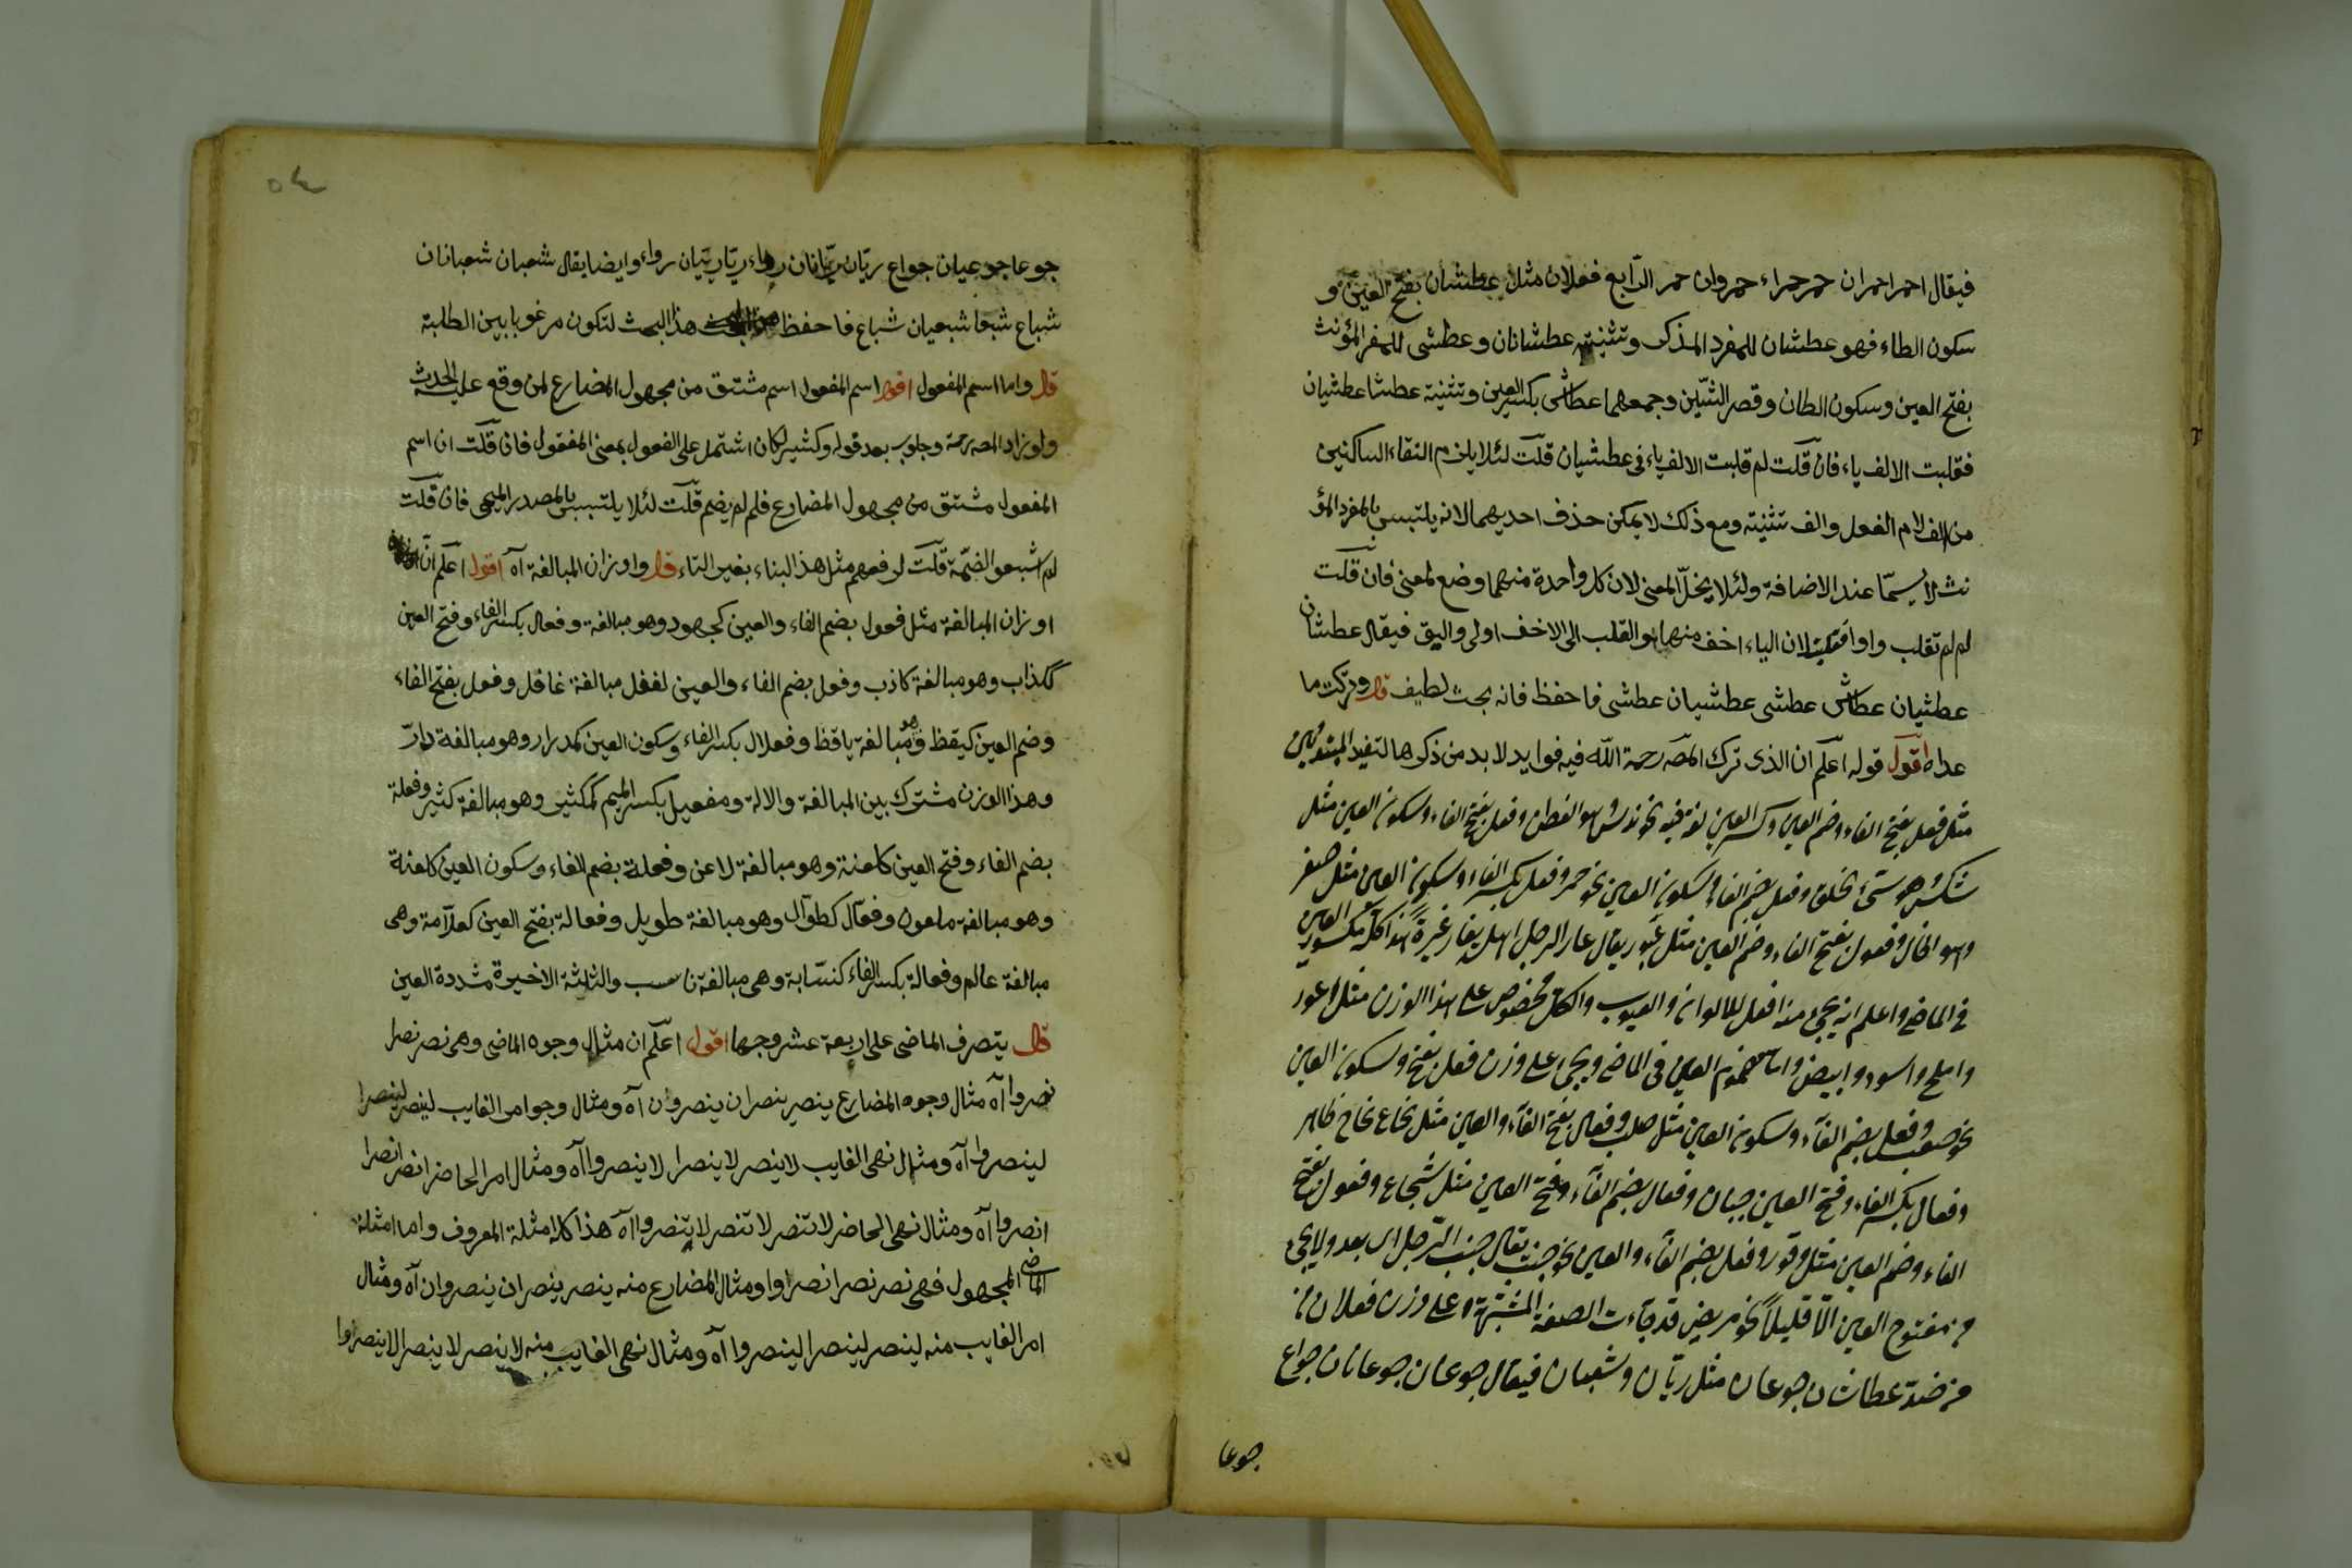 فيقال احمر احمران حمر حمراء حمروان حمر الرّابع فعلان مثل عطشان بفتح العين و
سكون الطاء فهو عطشان للمفرد المذكر وتثنيته عطشانان وعطشى للمفر المؤنث
بفتح العين وسكون الطان وقصر الشّين وجمعهما عطاش بكسر العين وتثنية عطشا عطشيان
فقلبت الالف ياء فان قلت لم قلبت الالف ياء فى عطشيان قلت لئلا يلزم التقاء الساكنين
من الف لام الفعل والف تثنيته ومع ذلك لا يمكن حذف احديهما لانه يلتبس بالمفرد المؤ
نث لا سيّما عند الاضافة ولئلا يخلّ المعنى لان كل واحدة منهما وضع لمعنى فان قلت
لم لم تقلب واوا قلت لان الياء اخف منها والقلب الى الاخف اولى واليق فيقال عطشان
عطشيان عطاش عطشى عطشيان عطشى فاحفظ فانه بحث لطيف قال وتركت ما
عداه اقول قوله اعلم ان الذى ترك المصّ رحمة اللّه فيه فوايد لا بد من ذكرها لتفيد المبتدئين
مثل فعل بفتح الفاء وضم العين وكسر العين لغة فيه نحو ندس وهو الفطن وفعل بفتح الفاء وسكون العين مثل
شكس وهو سئ الخلق وفعل بضم الفاء وسكون العين نحو حمر وفعل بكسر الفاء وسكون العين مثل صفر
وهو الخال وفعول بفتح الفاء وضم العين مثل غيور يقال غار الرجل اهله يغار غيرةً هذا كله مكسور العين
فى الماضى واعلم انه يجئ منه افعل للالوان والعيوب والكل مخصوص على هذا الوزن مثل اعور
واملح واسود وابيض واما مضموم العين فى الماضى ويجئ على وزن فعل بفتح وسكون العين
نحو صعب وفعل بضم الفاء وسكون العين مثل صلب وفعال بفتح الفاء والعين مثل
وفعال بكسر الفاء وفتح العين جبان وفعال بضم الفاء وفتح العين مثل شجاع وفعول بفتح
الفاء وضم العين مثل وقور وفعل بضم الفاء والعين نحو جنب يقال جنب الرّجل اى بعد ولا يجئ
من مفتوح العين الّا قليلاً نحو مريض قد جآءت الصفة المشبّهة على وزن فعلان
من ضدّ عطشان جوعان مثل ريّان وشبعان فيقال جوعان جوعانان جواع
جوعا
٥٤
جوعا جوعيان جواع ريّان ريّانان رواء ريّا ريّيان رواء وايضا يقال شعبان شعبانان
شباع شبعا شبعيان شباع فاحفظ هذا البحث لتكون مرغوبا بين الطلبة
قال واما اسم المفعول اقول اسم المفعول اسم مشتق من مجهول المضارع لمن وقع عليه الحدث
ولو زاد المصه رحمة وجلوب بعد قوله وكثير لكان اشتمل على الفعول بمعنى المفعول فان قلت ان اسم
المفعول مشتق من مجهول المضارع فلم لم يضم قلت لئلا يلتبس بالمصدر الميمى فان قلت
لم اشبعوا الضمّة قلت لرفعهم مثل هذا البناء بغير التاء قال واوزان المبالغة آه اقول اعلم انّ
اوزان المبالغة مثل فعول بضم الفاء والعين كجهود وهو مبالغة وفعال بكسر الفاء وفتح العين
ككذاب وهو مبالغة كاذب وفعل بضم الفاء والعين لغفل مبالغة غافل وفعل بفتح الفاء
وضم العين كيقظ وهو مبالغة ياقظ وفعلال بكسر الفاء وسكون العين كمدرار وهو مبالغة دارّ
وهذا الوزن مشترك بين المبالغة والالة ومفعيل بكسر الميم كمكثير وهو مبالغة كثير وفعلة
بضم الفاء وفتح العين كلعنة وهو مبالغة لاعن وفعلة بضم الفاء وسكون العين كلعنة
وهو مبالغة ملعون وفعّال كطوّال وهو مبالغة طويل وفعالة بفتح العين كعلّامة وهى
مبالغة عالم وفعالة بكسر الفاء كنسّابة وهى مبالغة ناسب والثلثة الاخيرة مشددة العين
قال يتصرف الماضى على اربعة عشر وجها اقول اعلم ان مثال وجوه الماضى وهى نصر نصرا
نصروا آه مثال وجوه المضارع ينصر ينصران ينصرون آه ومثال وجوامر الغايب لينصر لينصرا
لينصروا آه ومثال نهى الغايب لا ينصر لا ينصرا لا ينصروا آه ومثال امر الحاضر انصر انصرا
انصروا آه ومثال نهى الحاضر لا تنصر لا تنصرا لا تنصروا آه هذا كله امثلة المعروف واما امثلة
الماضى المجهول فهى نصر نصرا نصروا ومثال المضارع منه ينصر ينصران ينصروان آه ومثال
امر الغايب منه لينصر لينصرا لينصروا آه ومثال نهى الغايب منه لا ينصر لا ينصرا لا ينصروا